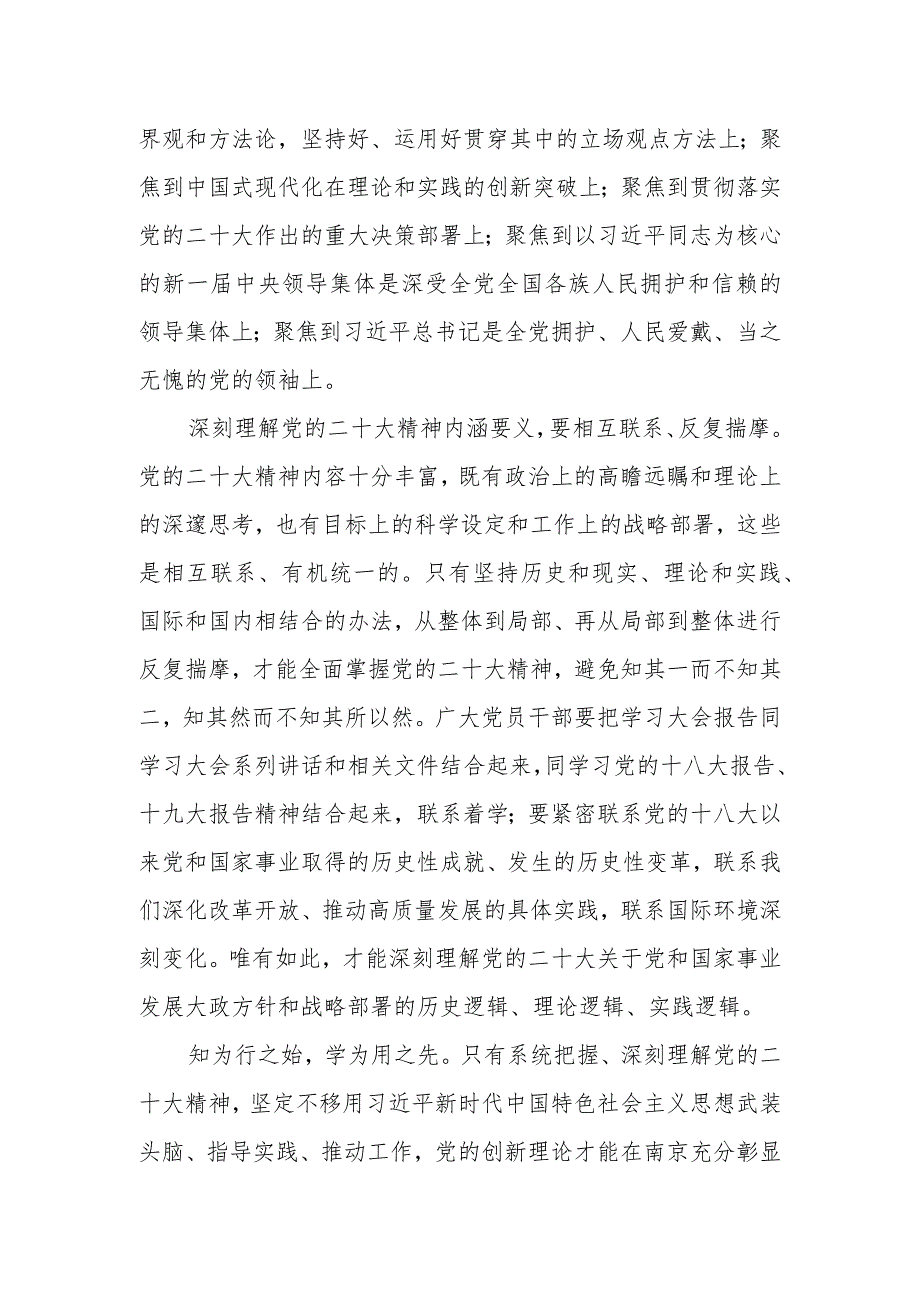 界观和方法论，坚持好、运用好贯穿其中的立场观点方法上；聚
焦到中国式现代化在理论和实践的创新突破上；聚焦到贯彻落实
党的二十大作出的重大决策部署上；聚焦到以习近平同志为核心
的新一届中央领导集体是深受全党全国各族人民拥护和信赖的
领导集体上；聚焦到习近平总书记是全党拥护、人民爱戴、当之
无愧的党的领袖上。
深刻理解党的二十大精神内涵要义，要相互联系、反复揣摩。
党的二十大精神内容十分丰富，既有政治上的高瞻远瞩和理论上
的深邃思考，也有目标上的科学设定和工作上的战略部署，这些
是相互联系、有机统一的。只有坚持历史和现实、理论和实践、
国际和国内相结合的办法，从整体到局部、再从局部到整体进行
反复揣摩，才能全面掌握党的二十大精神，避免知其一而不知其
二，知其然而不知其所以然。广大党员干部要把学习大会报告同
学习大会系列讲话和相关文件结合起来，同学习党的十八大报告、
十九大报告精神结合起来，联系着学；要紧密联系党的十八大以
来党和国家事业取得的历史性成就、发生的历史性变革，联系我
们深化改革开放、推动高质量发展的具体实践，联系国际环境深
刻变化。唯有如此，才能深刻理解党的二十大关于党和国家事业
发展大政方针和战略部署的历史逻辑、理论逻辑、实践逻辑。
知为行之始，学为用之先。只有系统把握、深刻理解党的二
十大精神，坚定不移用习近平新时代中国特色社会主义思想武装
头脑、指导实践、推动工作，党的创新理论才能在南京充分彰显